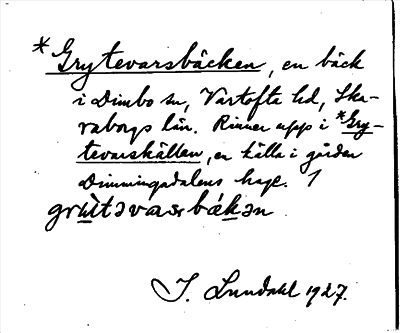 *Grytevarsbäcken, en bäck
i Dimbo sn, Vartofta hd, Ska-
raborgs län. Rinner upp i *Gry-
tevarskällan, en källa i gården
Dimmingadalens hage. 1
grùtəvaər bǽkən
I. Lundahl 1927.